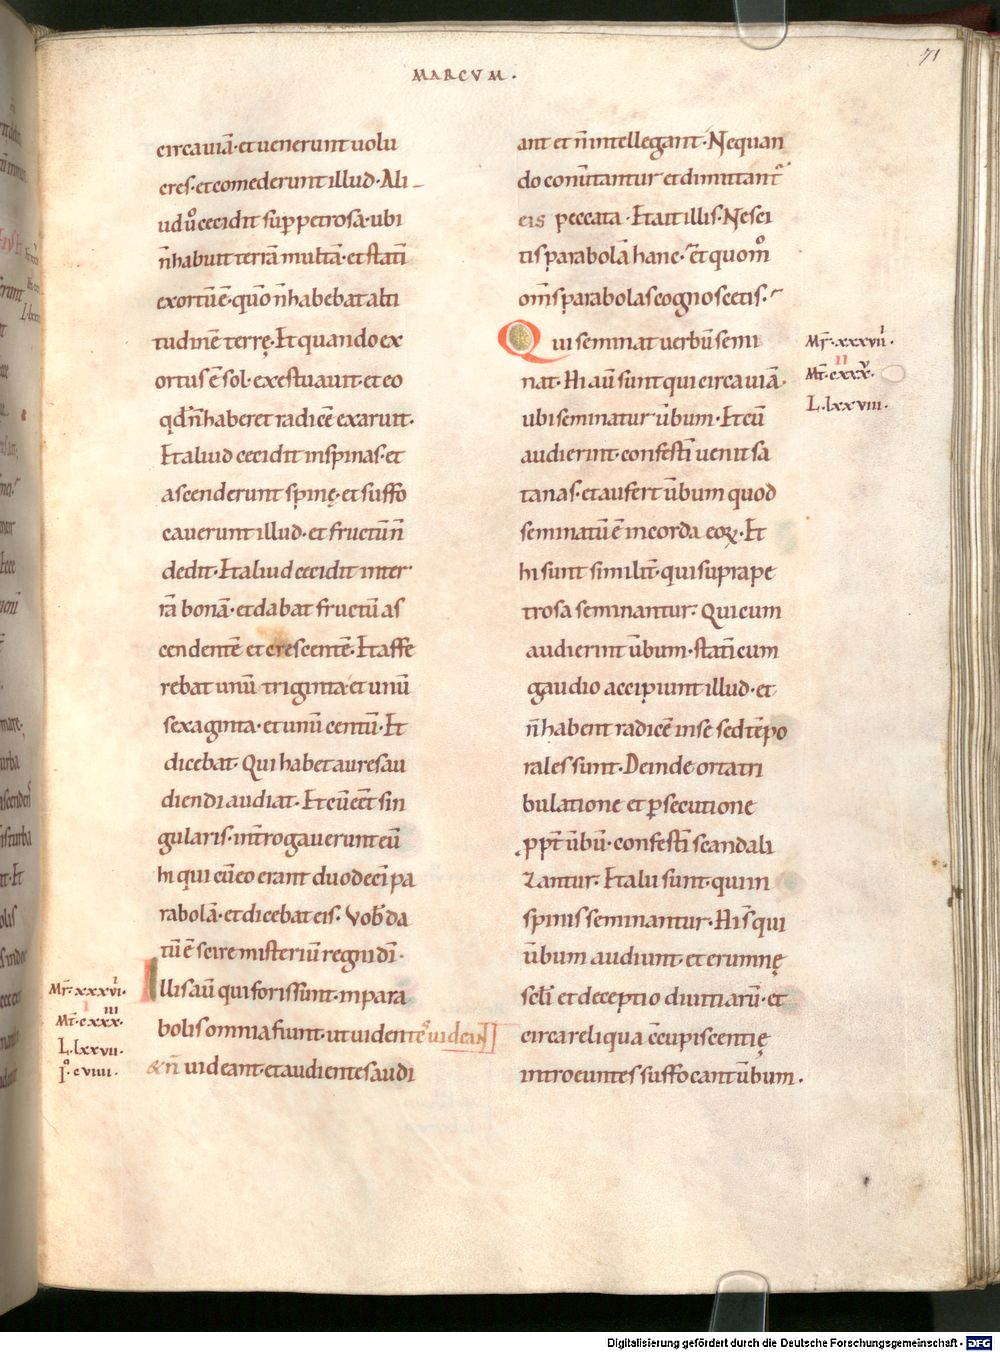 MARCVM.
71
circa uiā· et uenerunt uolu
cres· et comederunt illud· Ali
ud ů cecidit suꝑ petrosa· ubi
n̄ habuit terrā multā· et statī
exortū ē· qm̄o n̄ habebat alti
tudinē terrę· Et quando ex
ortus ē sol· exestuauit· et eo
qd̄ n̄ haberet radicē exaruit·
Et aliud cecidit in spinas· et
ascenderunt spinę· et suffo
cauerunt illud· et fructū n̄
dedit· Et aliud cecidit inter
rā bonā· et dabat fructū as
cendentē et crescentē· Et affe
rebat unū triginta· et unū
sexaginta· et unū centū· Et
dicebat· Qui habet aures au
diendi audiat· Et cū eēt sin
gularis· int̄rogauerunt eū
hi qui cū eo erant duodecī pa
rabolā· et dicebat eis· Vob̄ da
tū ē scire misteriū regni dī·
Illis aū qui foris sunt· in para
bolis omnia fiunt· ut uidentes uideant
& n̄ uideant· et audientes audi
Mr̄·xxxvi· i
Mt̄·cxxx· iii
L·lxxvii·
Io·cviiii·
ant et n̄ intellegant· Nequan
do conūtantur et dimittant̄
eis peccata· Et ait illis· Nesci
tis parabolā hanc· et quom̊
om̄s parabolas cognoscetis·
Qui seminat uerbū semi
nat· Hi aū sunt qui circa uiā·
ubi seminatur ūbum· Et cū
audierint· confestī uenit sa
tanas· et aufert ūbum quod
seminatū ē in corda eoꝝ· Et
hi sunt similit̄· qui supra pe
trosa seminantur· Qui cum
audierint ūbum· statī cum
gaudio accipiunt illud· et
n̄ habent radicē in se sed tēpo
rales sunt· Deinde orta tri
bulatione et ꝑsecutione
ꝓpt̄ ūbū· confestī scandali
zantur· Et alii sunt· qui in
spinis seminantur· Hi s̄ qui
ūbum audiunt· et erumnę
sclī et deceptio diuitiarū· et
circa reliqua c̄cupiscentię
introeuntes suffocant ūbum·
Mr̄·xxxvii· i
Mt̄·cxxx· ii v
L·lxxviii·
Digitalisierung gefördert durch die Deutsche Forschungsgemeinschaft - DFG